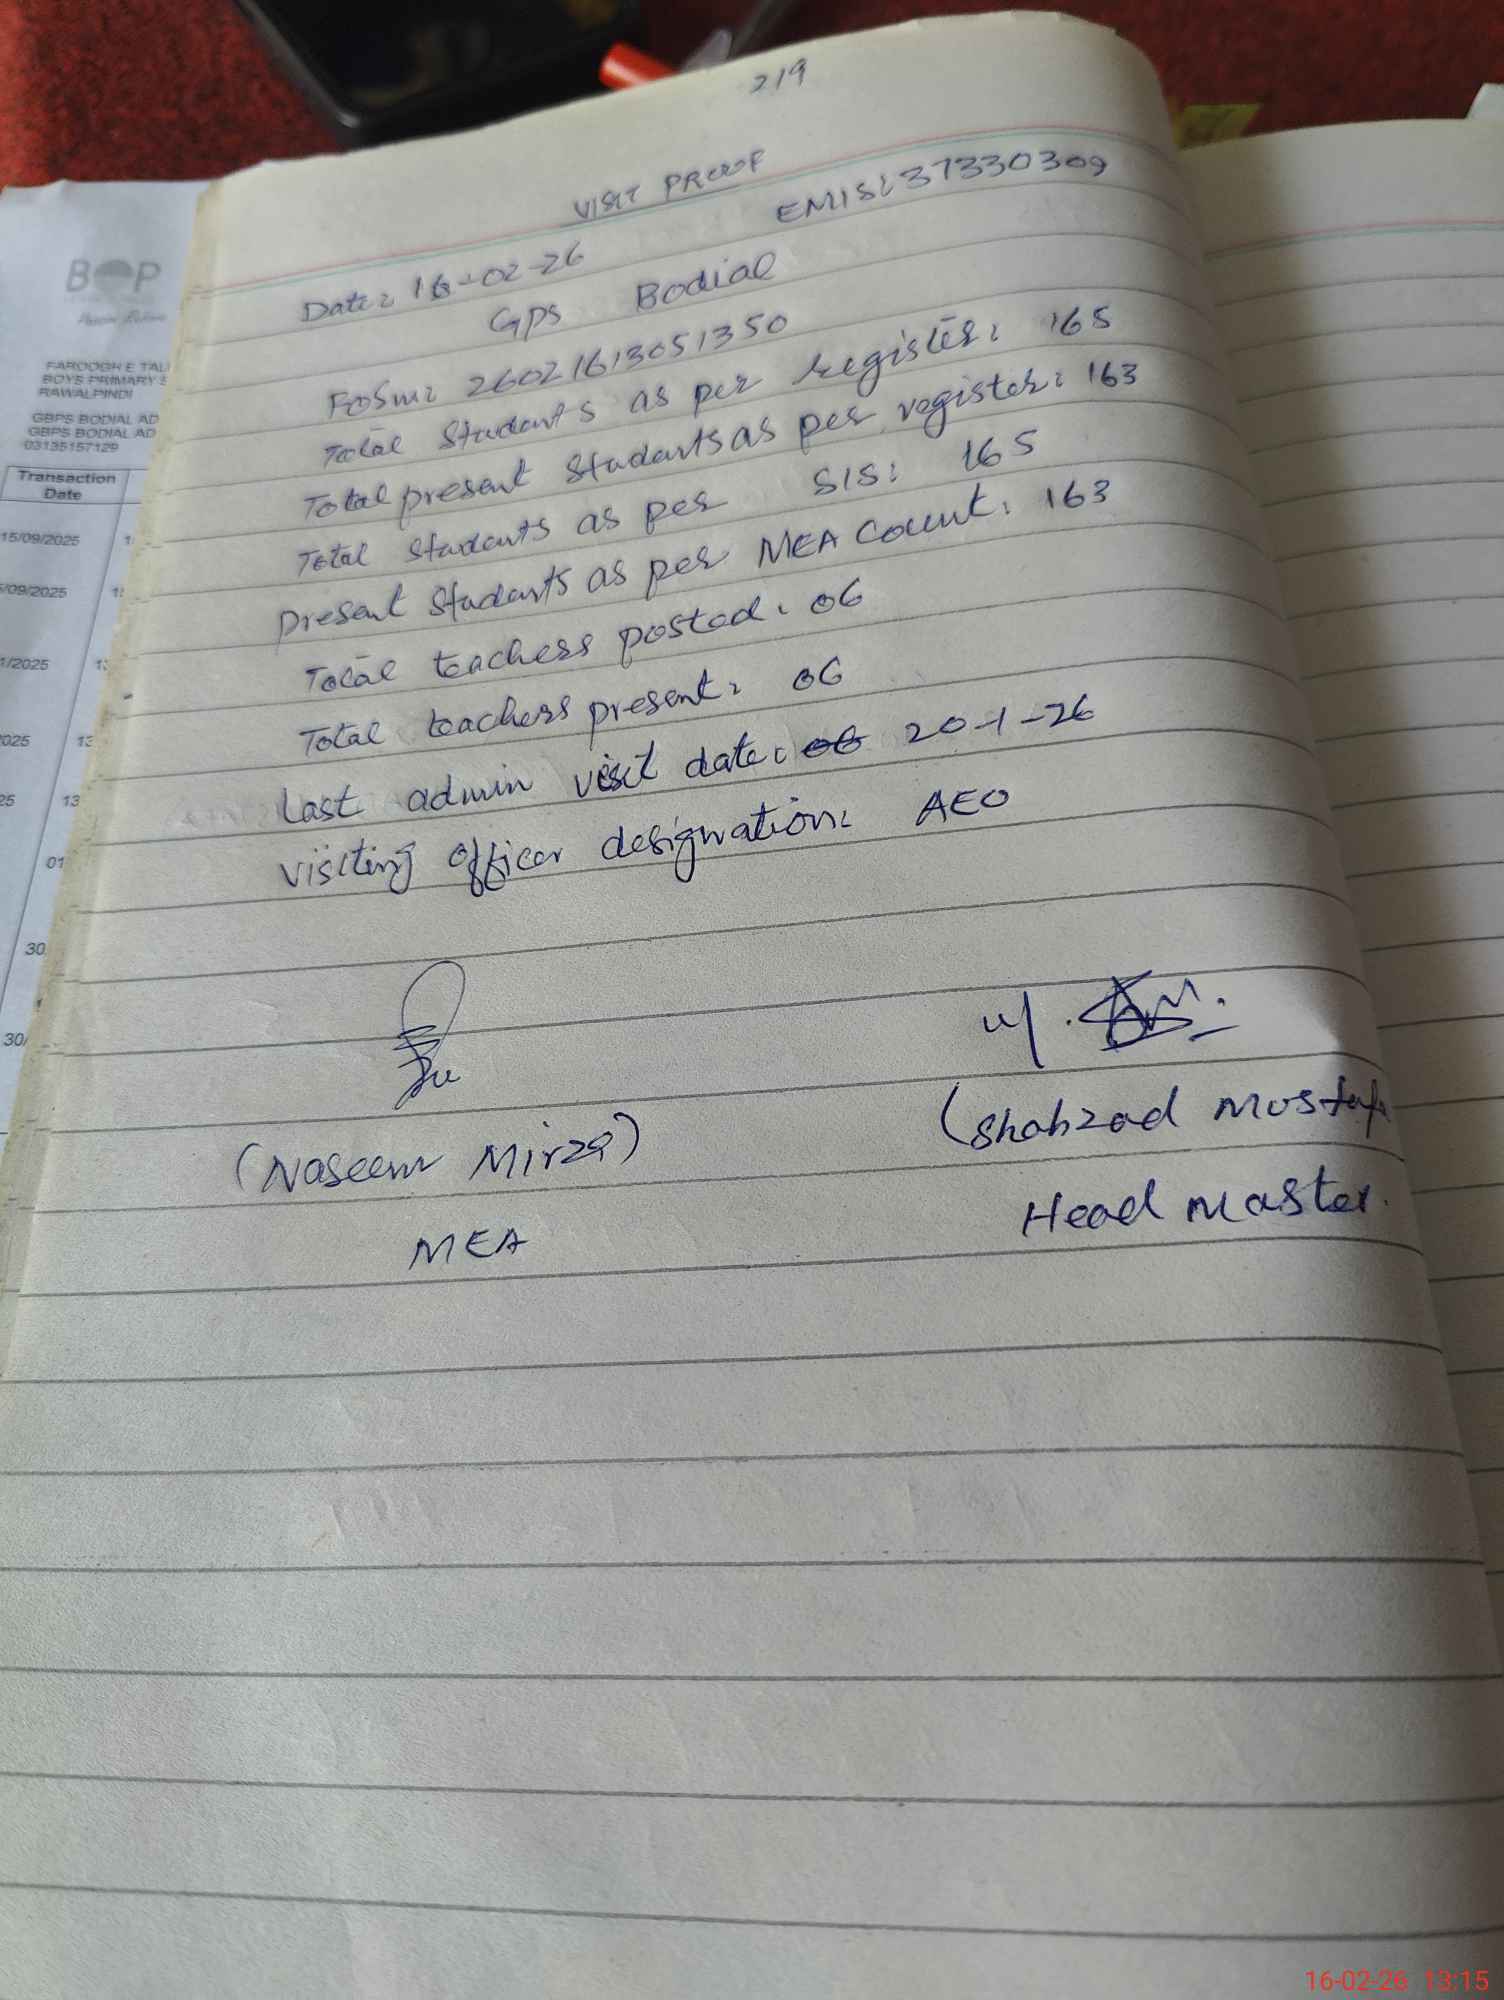 219
VISIT PROOF
Date: 16-02-26 EMIS: 37330309
GPS Bodial
FOSM: 26021613051350
Total Students as per register: 165
Total present students as per register: 163
Total students as per SIS: 165
Present students as per MEA Count: 163
Total teachers posted: 06
Total teachers present: 06
Last admin visit date: 06 20-1-26
Visiting officer designation: AEO
(Naseem Mirza)
MEA
(Shahzad Mustafa
Head Master.
BOP
FAROOGH E TAL
BOYS PRIMARY S
RAWALPINDI
GBPS BODIAL AD
GBPS BODIAL AD
03135157129
Transaction
Date
15/09/2025
/09/2025
1/2025
025 13
25 13
01
30
30/
16-02-26 13:15